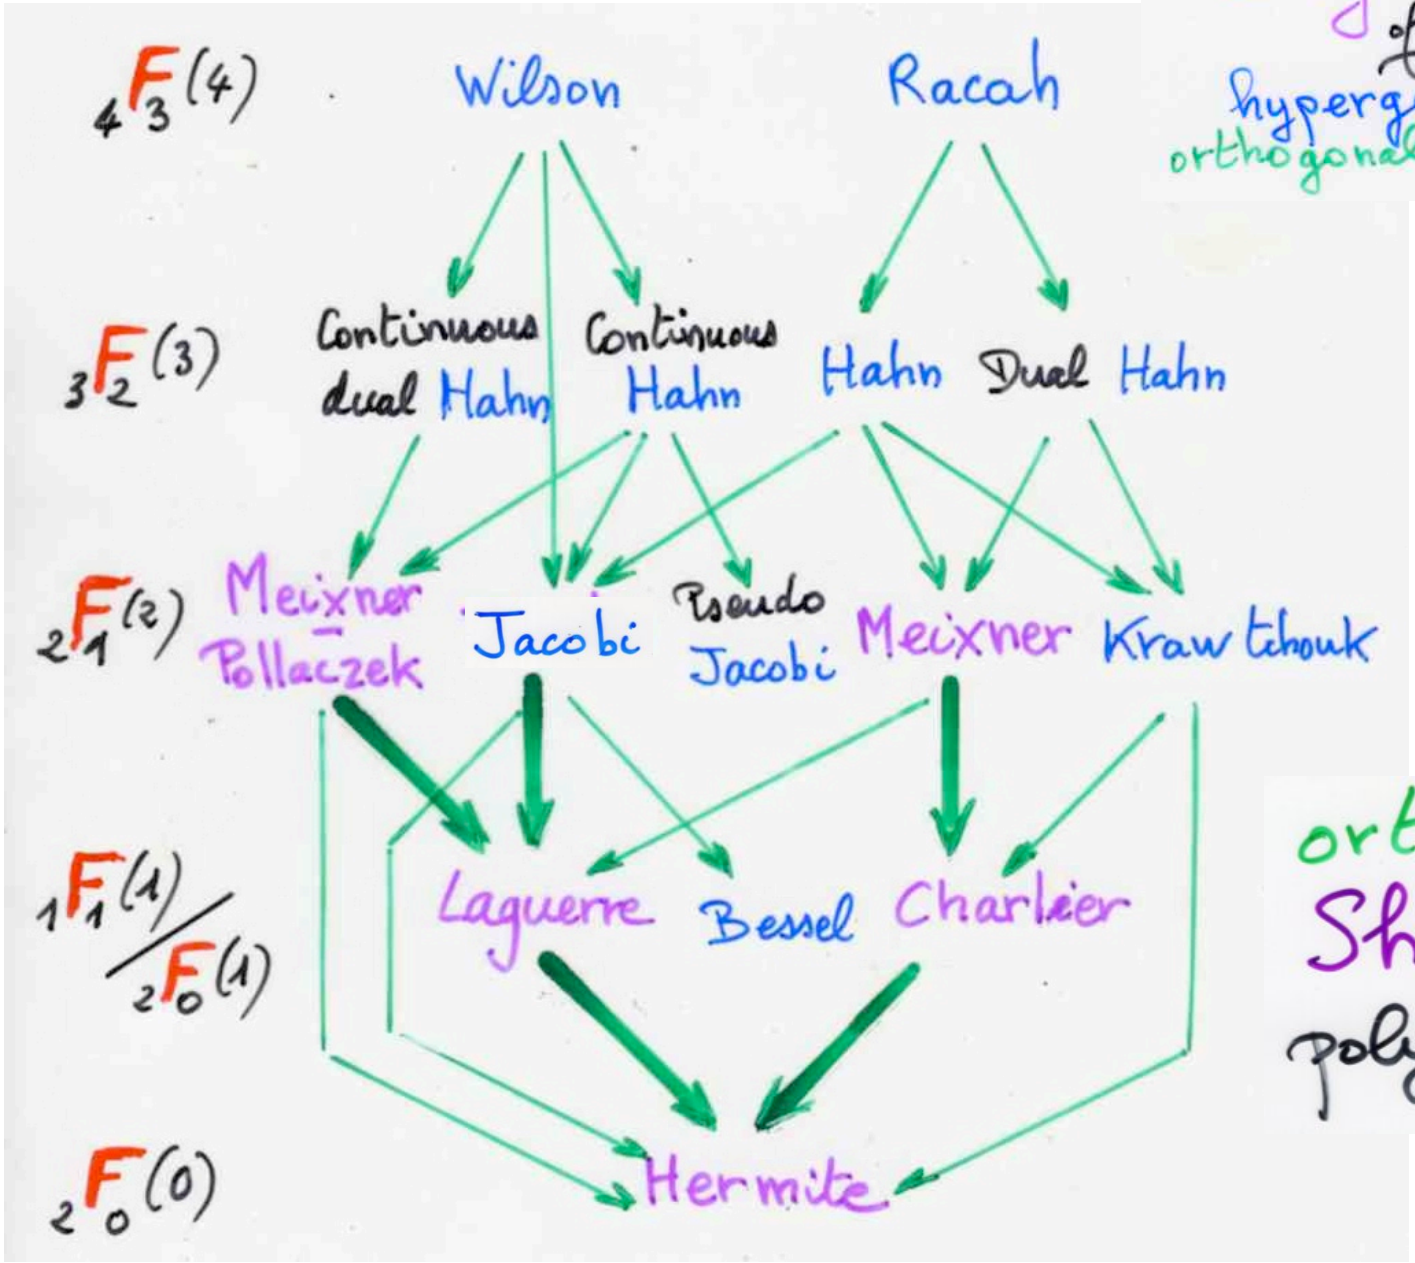 ₄F₃(4) Wilson Racah of
hyperg
orthogonal
₃F₂(3) Continuous dual Hahn Continuous Hahn Hahn Dual Hahn
₂F₁(2) Meixner – Pollaczek Jacobi Pseudo Jacobi Meixner Krawtchouk
₁F₁(1) / ₂F₀(1) Laguerre Bessel Charlier
ort
Sh
poly
₂F₀(0) Hermite